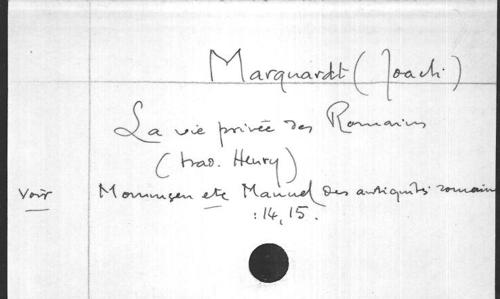 Marquardt (Joach)
La vie privée des Romains
(trad. Henry)
Voir Mommsen etc Manuel des antiquités romain
: 14, 15.